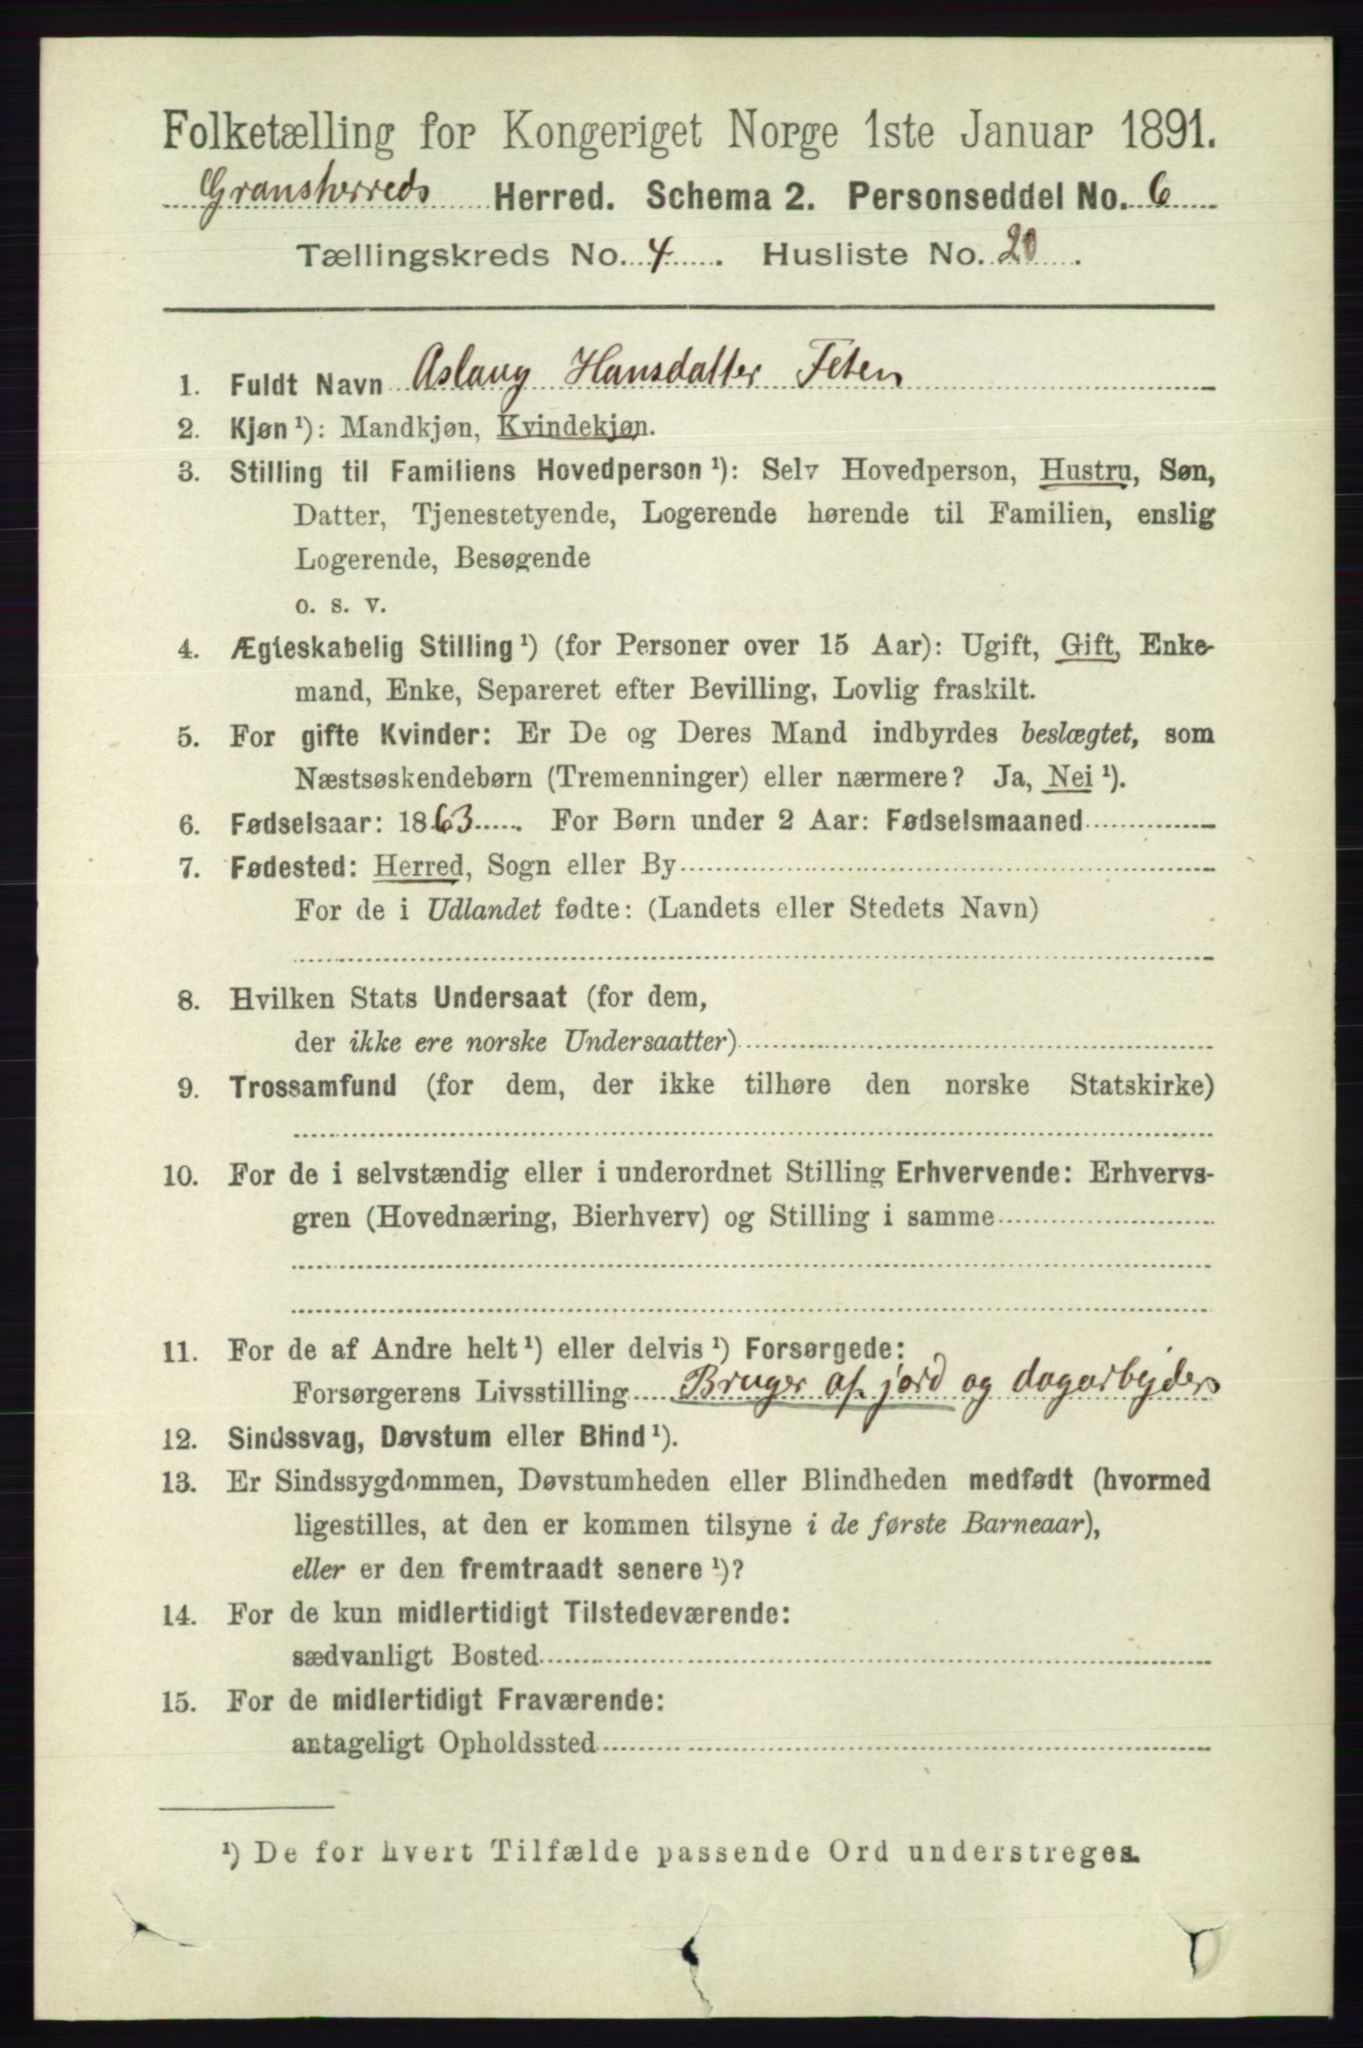 Folketælling for Kongeriget Norge 1ste Januar 1891.
Gransherreds Herred. Schema 2. Personseddel No. 6
Tællingskreds No. 4. Husliste No. 20.
1. Fuldt Navn Aslaug Hansdatter Feten
2. Kjøn ¹): Mandkjøn, Kvindekjøn.
3. Stilling til Familiens Hovedperson ¹): Selv Hovedperson, Hustru, Søn,
Datter, Tjenestetyende, Logerende hørende til Familien, enslig
Logerende, Besøgende
o. s. v.
4. Ægteskabelig Stilling ¹) (for Personer over 15 Aar): Ugift, Gift, Enke-
mand, Enke, Separeret efter Bevilling, Lovlig fraskilt.
5. For gifte Kvinder: Er De og Deres Mand indbyrdes beslægtet, som
Næstsøskendebørn (Tremenninger) eller nærmere? Ja, Nei ¹).
6. Fødselsaar: 1863. For Børn under 2 Aar: Fødselsmaaned
7. Fødested: Herred, Sogn eller By
For de i Udlandet fødte: (Landets eller Stedets Navn)
8. Hvilken Stats Undersaat (for dem,
der ikke ere norske Undersaatter)
9. Trossamfund (for dem, der ikke tilhøre den norske Statskirke)
10. For de i selvstændig eller i underordnet Stilling Erhvervende: Erhvervs-
gren (Hovednæring, Bierhverv) og Stilling i samme
11. For de af Andre helt ¹) eller delvis ¹) Forsørgede:
Forsørgerens Livsstilling Bruger af jord og dagarbejder
12. Sindssvag, Døvstum eller Blind ¹).
13. Er Sindssygdommen, Døvstumheden eller Blindheden medfødt (hvormed
ligestilles, at den er kommen tilsyne i de første Barneaar),
eller er den fremtraadt senere ¹)?
14. For de kun midlertidigt Tilstedeværende:
sædvanligt Bosted
15. For de midlertidigt Fraværende:
antageligt Opholdssted
¹) De for hvert Tilfælde passende Ord understreges.